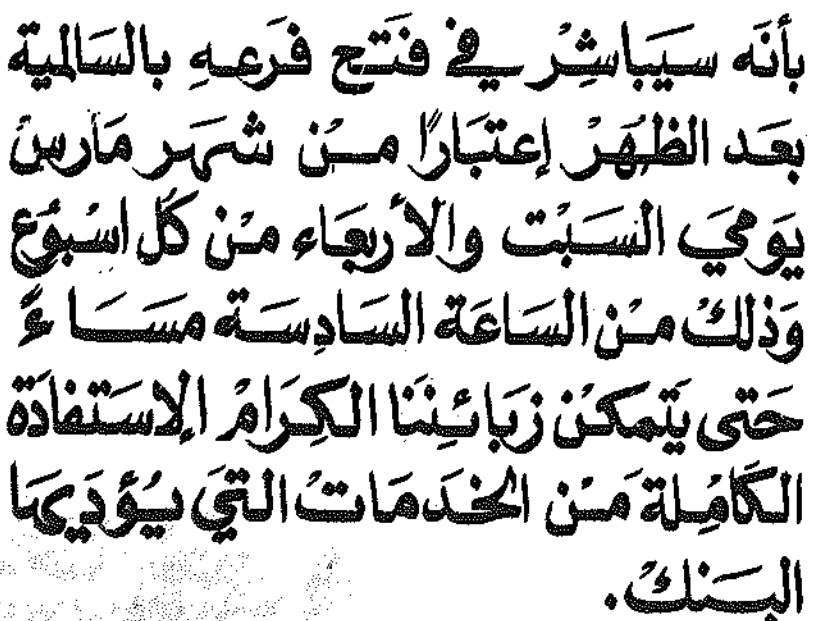 بأنَه سيَباشِرْ في فتَح فرَعهِ بالسَالمية
بعَد الظهَرْ إعتبَارًا مـنْ شهَر مَارسْ
يَوميَ السَبْت والأربعَاء منْ كل اسبُوع
وَذلكْ منْ السَاعَة السَادِسَة مسَاءً
حَتى يَتمكنْ زبَائننَا الكِرَامْ الإستفادَة
الكَامِلة مَنْ الخدَمَاتْ التيَ يُؤدَيهَا
البَنكْ.